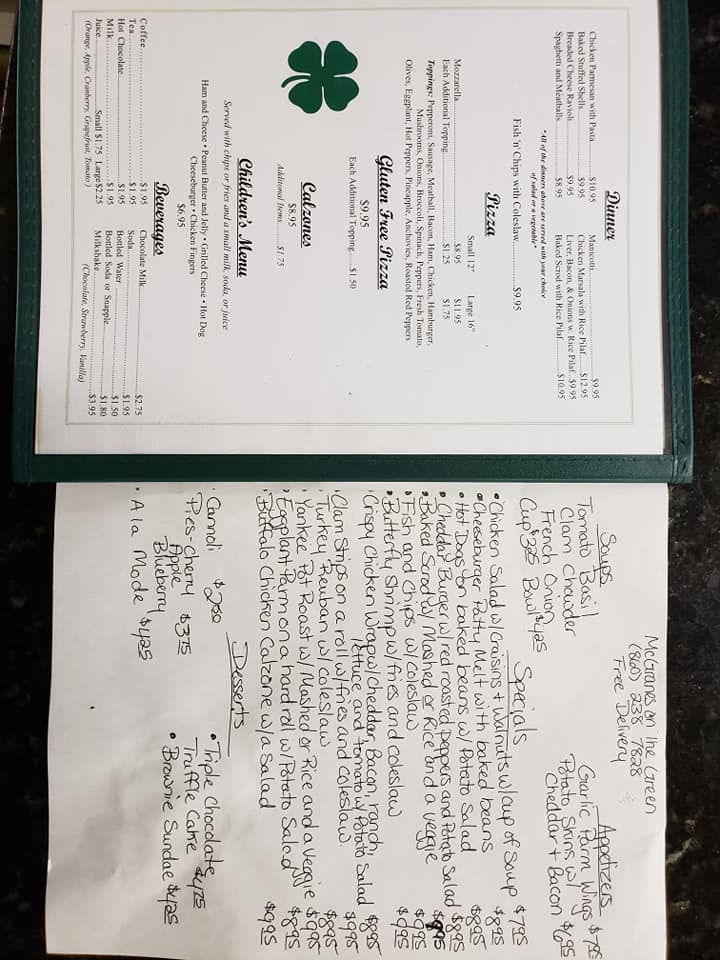 Dinner
Chicken Parmesan with Pasta $10.95 Manicotti $9.95
Baked Stuffed Shells $9.95 Chicken Marsala with Rice Pilaf $12.95
Breaded Cheese Ravioli $9.95 Liver, Bacon, & Onions w. Rice Pilaf $9.95
Spaghetti and Meatballs $8.95 Baked Scrod with Rice Pilaf $10.95
*All of the dinners above are served with your choice
of salad or a vegetable*
Fish 'n' Chips with Coleslaw $9.95
Pizza
Small 12" Large 16"
Mozzarella $8.95 $11.95
Each Additional Topping $1.25 $1.75
Toppings: Pepperoni, Sausage, Meatball, Bacon, Ham, Chicken, Hamburger,
Mushrooms, Onions, Broccoli, Spinach, Peppers, Fresh Tomato,
Olives, Eggplant, Hot Peppers, Pineapple, Anchovies, Roasted Red Peppers
Gluten Free Pizza
$9.95
Each Additional Topping $1.50
Calzones
$8.95
Additional Items $1.75
Children's Menu
Served with chips or fries and a small milk, soda, or juice
Ham and Cheese • Peanut Butter and Jelly • Grilled Cheese • Hot Dog
Cheeseburger • Chicken Fingers
$6.95
Beverages
Coffee $1.95 Chocolate Milk $2.75
Tea $1.95 Soda $1.95
Hot Chocolate $1.95 Bottled Water $1.50
Milk $1.95 Bottled Soda or Snapple $1.80
Juice Small $1.75 Large $2.25 Milkshake $3.95
(Orange, Apple, Cranberry, Grapefruit, Tomato) (Chocolate, Strawberry, Vanilla)
McGranes on the Green
(860) 238 7828
Free Delivery
Soups
Tomato Basil
Clam Chowder
French Onion
Cup $3.25 Bowl $4.25
Appetizers
Garlic Parm Wings $7.95
Potato Skins w/
Cheddar + Bacon $6.95
Specials
• Chicken Salad w/ Craisins + Walnuts w/ cup of Soup $7.95
• Cheeseburger Patty Melt with baked beans $8.95
• Hot Dogs on baked beans w/ Potato Salad $8.95
• Cheddar Burger w/ red roasted peppers and Potato Salad $8.95
• Baked Scrod w/ Mashed or Rice and a veggie $9.95
• Fish and Chips w/ Coleslaw $9.95
• Butterfly Shrimp w/ fries and coleslaw $9.95
• Crispy Chicken Wrap w/ Cheddar, Bacon, ranch,
lettuce and tomato w/ Potato Salad $8.95
• Clam Strips on a roll w/ fries and coleslaw $9.95
• Turkey Reuban w/ coleslaw $8.95
• Yankee Pot Roast w/ Mashed or Rice and a Veggie $9.95
• Eggplant Parm on a hard roll w/ Potato Salad $8.95
• Buffalo Chicken Calzone w/ a Salad $9.95
Desserts
• Cannoli $2.50
Pies - Cherry
Apple $3.75
Blueberry
• A la Mode $4.25
• Triple Chocolate
Truffle Cake $4.75
• Brownie Sundae $4.25